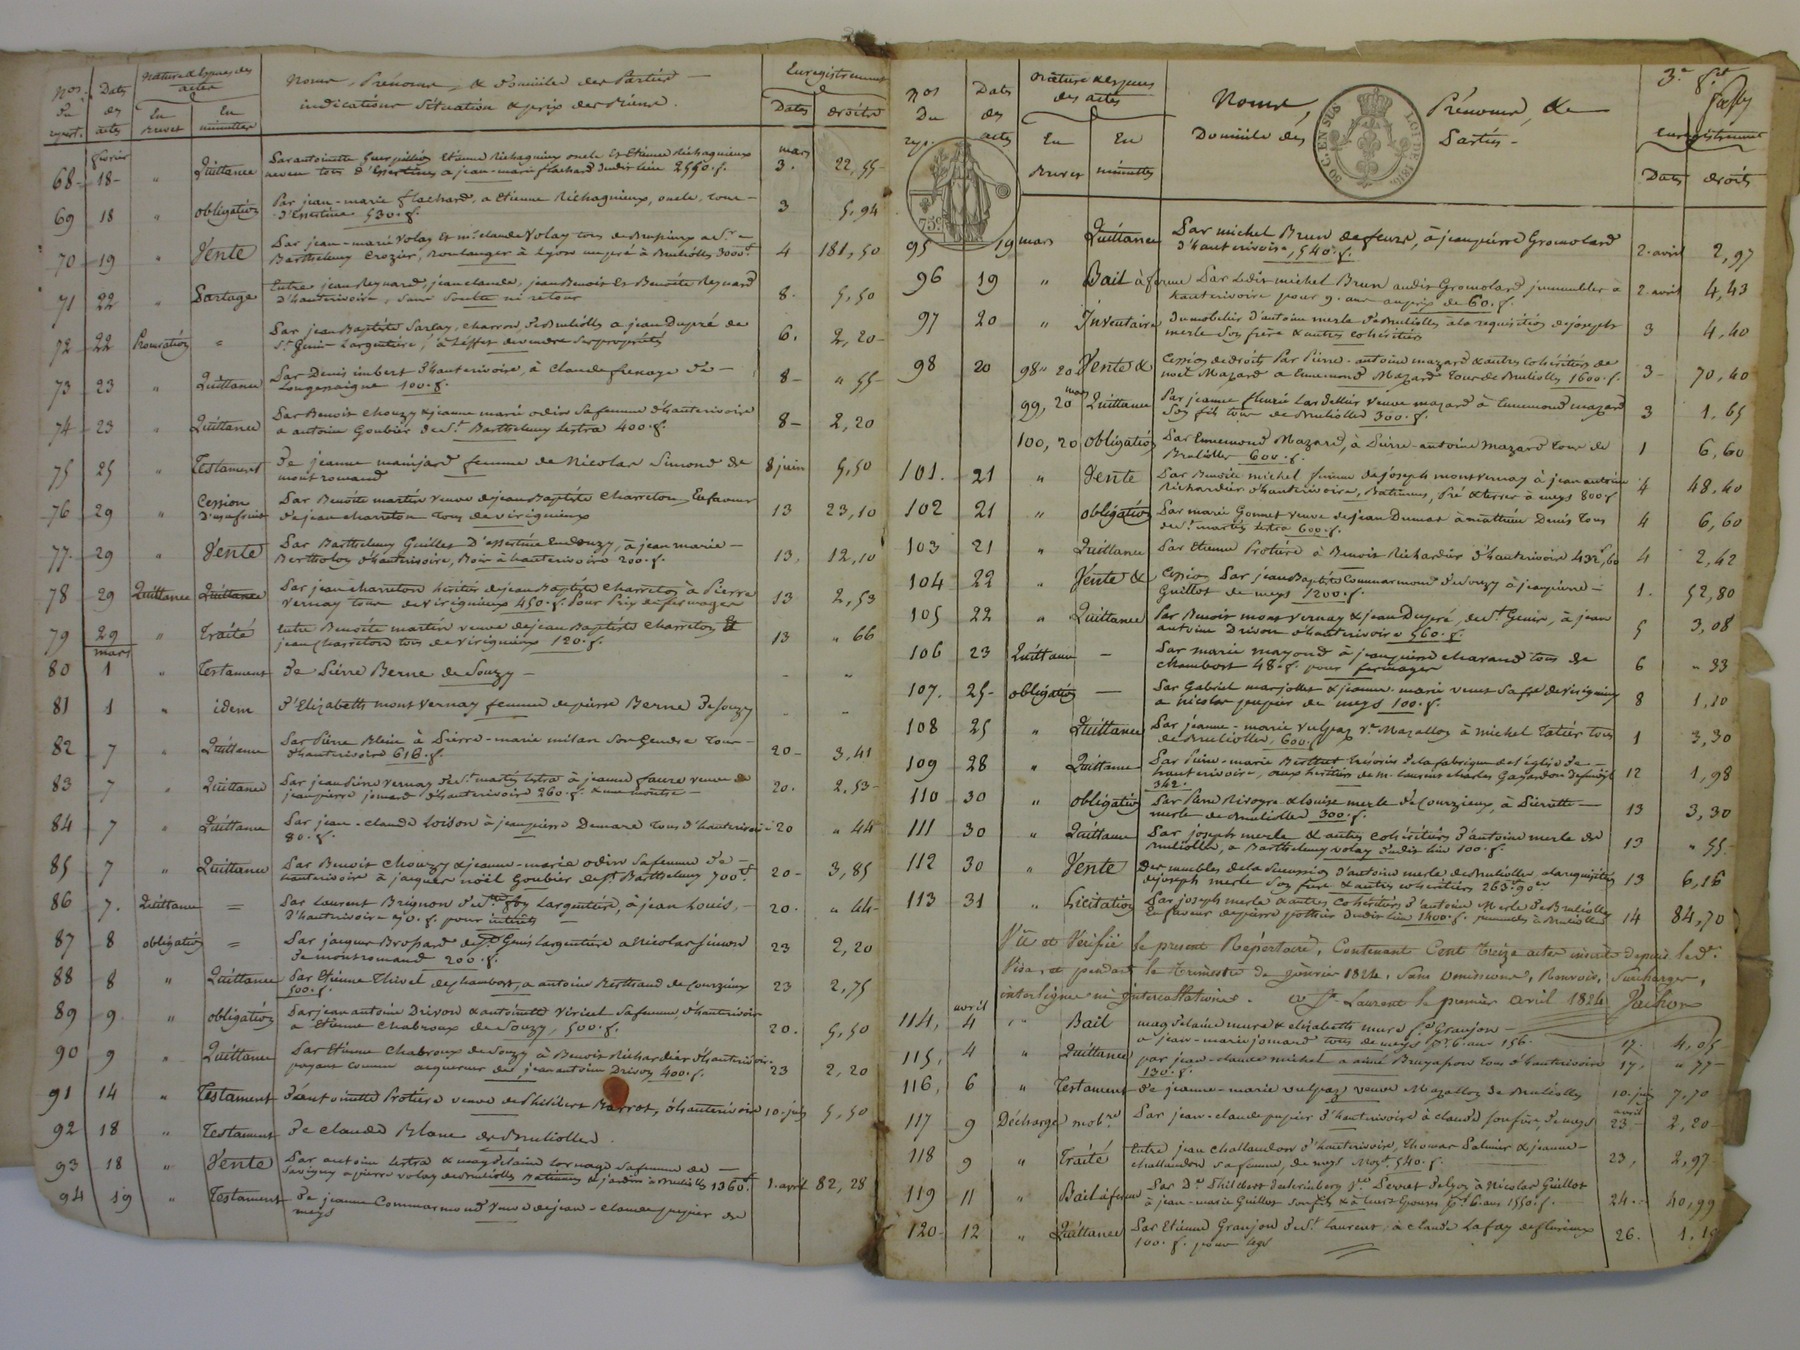 Nos Du repert. Dates des actes Nature & Espèces des actes En Brevet En minutes
Noms, Prénoms, & Domicile des Parties —
indications Situation & prix des Biens.
Enregistrement Dates droits
68 février 18 " Quittance Par antoinette étienne Richagneux oncle Et Etienne Richagneux
neveu tous d'Essertines a jean-marie flachard dudit lieu 2550.f. mars 3. 22,55
69 18 " obligation Par jean-marie flachard, a Etienne Richagneux, oncle, tous
d'Essertine 530.f. 3 5,94
70 19 " Vente Par jean-marie Volay Et me claude Volay tous de a Sr
Barthelemy Crozier, Boulanger à Lyon un pré à Brulioles 3000f. 4 181,50
71 22 " Partage Entre jean Reynard, jean claude, jean Benoit Et Benoite Reynard
d'hauterivoire, sans Soulte ni retour 8. 5,50
72 22 Procuration = Par jean Baptiste Parlay, charron, de Brulioles a jean Dupré de
St Genis Largentiere, à L'effet de vendre Ses propriétés 6. 2,20
73 23 " Quittance Par Denis imbert d'hauterivoire, à Claude frenay de
Longessaigne 100.f. 8 " 55
74 23 " Quittance Par Benoit Chouzy & jeanne marie odin Sa femme d'hauterivoire
a antoine Goubier de St Barthelemy Lestra 400.f. 8 2,20
75 25 " Testament De jeanne mainjard femme de Nicolas Simond de
montromand 8 juin 5,50
76 29 " Cession d'usufruit Par Benoite martin veuve de jean Baptiste Charreton, En faveur
de jean charreton Tous de virigneux 13 23,10
77 29 " Vente Par Barthelemy Guillet D'Essertine En donzy, à jean marie
Bertholon d'hauterivoire, Bois à hauterivoire 200.f. 13, 12,10
78 29 Quittance Quittance Par jean charreton héritier de jean Baptiste Charreton à Pierre
Vernay tous de virigneux 450.f. Pour Prix de fermages 13 2,53
79 29 " Traité Entre Benoite martin veuve de jean Baptiste charreton Et
jean Charreton tous de Virigneux 120.f. 13 " 66
mars
80 1 " Testament De Pierre Berne de Souzy — - "
81 1 " idem D'Elizabeth mont vernay femme de pierre Berne de Souzy .. ..
82 7 " Quittance Par Pierre Blein à Pierre-marie milan Son Gendre Tous
d'hauterivoire 616.f. 20 3,41
83 7 " Quittance Par jean Pierre vernay de St martin Lestra à jeanne faure veuve de
jean pierre jomard d'hauterivoire 260.f. & une montre 20. 2,53
84 7 " Quittance Par jean-claude Loison à jean pierre Demare Tous d'hauterivoire
80.f. 20 " 44
85 7 " Quittance Par Benoit Chouzy & jeanne-marie odin Sa femme de
hauterivoire à jacques noël Goubier de St Barthelemy 700f. 20 3,85
86 7. Quittance = Par Laurent Brignon de St Largentiere, à jean Louis,
d'hauterivoire 50.f. pour intérêts 20. " 44
87 8 obligation = Par jacques Brossard de St Genis Largentiere a Nicolas Simon
de montromand 200.f. 23 2,20
88 8 " Quittance Par Etienne Thivel de chambost, a antoine Berthaud de Courzieux
500.f. 23 2,75
89 9 " obligation Par jean antoine Drivon & antoinette Viricel Sa femme, d'hauterivoire
a Etienne Chabroux de Souzy, 500.f. 20. 5,50
90 9 " Quittance Par Etienne Chabroux de Souzy à Benoit Richardier d'hauterivoire
payant comme acquereur de jean antoine Drivon 400.f. 23 2,20
91 14 " Testament d'antoinette Protiere veuve de Philibert Barrot, d'hauterivoire 10 juin 5,50
92 18 " Testament De Claude Blanc de Brulioles.
93 18 " Vente Par antoine Lestra & magdelaine Lornage Sa femme de
Savigny a pierre volay de Brulioles Batimens & jardin à Brulioles 1360f. 1.avril 82,28
94 19 " Testament De jeanne Commarmond veuve de jean-claude pupier de
meys
Nos Du rep. Dates des actes nature & espèces des actes En Brevet En minutes
Noms, Prénoms, &
Domicile des Parties
3e ft
Enregistrement Dates droits
50 C. EN SUS LOI DE 1816.
75 C
95 19 mars Quittance Par michel Brun de feurs, à jean pierre Gromolard
d'hauterivoire, 540.f. 2.avril 2,97
96 19 " Bail à ferme Par Ledit michel Brun audit Gromolard immeubles à
hauterivoire pour 9.ans au prix de 60.f. 2.avril 4,43
97 20 " Inventaire du mobilier d'antoine merle de Brulioles à la requisition de joseph
merle Son frère & autres cohéritiers 3 4,40
98 20 98" 20 Vente & Cession de droits Par Pierre-antoine mazard & autres Cohéritiers de
noël Mazard a Ennemond Mazard Tous de Brulioles 1600.f. 3 70,40
99, 20 mars Quittance Par jeanne fleurie Lardellier veuve mazard à Ennemond mazard
Son fils tous de Brulioles 300.f. 3 1,65
100, 20 obligation Par Ennemond Mazard, à Pierre-antoine Mazard Tous de
Brulioles 600.f. 1 6,60
101. 21 " Vente Par Benoite michel femme de joseph montvernay à jean antoine
Richardier d'hauterivoire, Batimens, Pré & terres à meys 800f 4 48,40
102 21 " obligation Par marie Gonnet veuve de jean Dumas à mathieu Denis Tous
de St martin Lestra 600.f. 4 6,60
103 21 " Quittance Par Etienne Protière à Benoit Richardier d'hauterivoire 432f,60 4 2,42
104 22 " Vente & Cession Par jean Baptiste Commarmond de Souzy à jean pierre
Guillot de meys 1200.f. 1. 52,80
105 22 " Quittance Par Benoit mont vernay & jean Dupré, de St Genis, à jean
antoine Drivon d'hauterivoire 560.f. 5 3,08
106 23 Quittance — Par marie mayoud à jean pierre charaud tous de
Chambost 48.f. pour fermages 6 " 33
107. 25 obligation — Par Gabriel marjollet & jeanne-marie Sa fe de virigneux
a nicolas pupier de meys 100.f. 8 1,10
108 25 " Quittance Par jeanne-marie Vulpaz ve Mazallon à michel Tatier tous
de Brulioles, 600.f. 1 3,30
109 28 " Quittance Par Pierre-marie Berthet trésorier de la fabrique de l'église de
hauterivoire, aux héritiers de m. Laurent charles Gayardon
342. 12 1,98
110 30 " obligation Par Pierre Rivoyre & Louise merle de Courzieux, à Pierrette
merle de Brulioles 300.f. 13 3,30
111 30 " Quittance Par joseph merle & autres cohéritiers d'antoine merle de
Brulioles, a Barthelemy volay dudit lieu 100.f. 13 " 55
112 30 " Vente Des meubles de la Succession d'antoine merle de Brulioles, à la requisition
de joseph merle Son frère & autres cohéritiers 263f.90c 13 6,16
113 31 " Licitation Par joseph merle & autres Cohéritiers d'antoine Merle de Brulioles
En faveur de pierre pothier dudit lieu 1400.f. immeubles à Brulioles 14 84,70
Vu et Vérifié le present Répertoire, Contenant Cent Treize actes inscrits depuis le dr.
Visa, et pendant le Trimestre de Janvier 1824, Sans omissions, Renvois, Surcharges,
interlignes ni intercallations. a St Laurent le premier avril 1824
114, avril 4 " Bail magdelaine mure & elizabeth mure fe Granjon
a jean-marie jomard tous de meys pr. 6. ans 156. 17. 4,05
115, 4 " Quittance par jean-claude michel a aimé Bruyas tous d'hauterivoire
130.f. 17, " 77
116, 6 " Testament de jeanne-marie vulpaz veuve Mazallon de Brulioles 10.juin 7,70
117 9 Décharge mobre Par jean-claude pupier d'hauterivoire à claude de meys avril 23 2,20
118 9 " Traité Entre jean challandon d'hauterivoire, Thomas Palmier & jeanne
challandon Sa femme, de meys Moyt. 540.f. 23, 2,97
119 11 " Bail à ferme Par Dr Philibert fe Perret de Lyon à Nicolas Guillot
à jean-marie Guillot Son fils & à Leurs Epouses pr 6. ans 1550.f. 24. 40,99
120 12 " Quittance Par Etienne Granjon de St Laurent, à claude Lafay de fleurieux
100.f. pour legs 26. 1,10